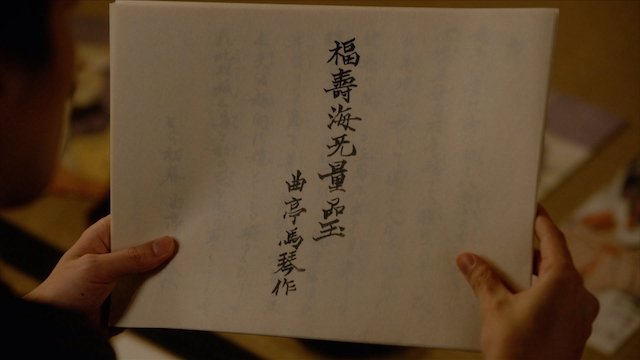 福壽海无量品玉
曲亭馬琴作